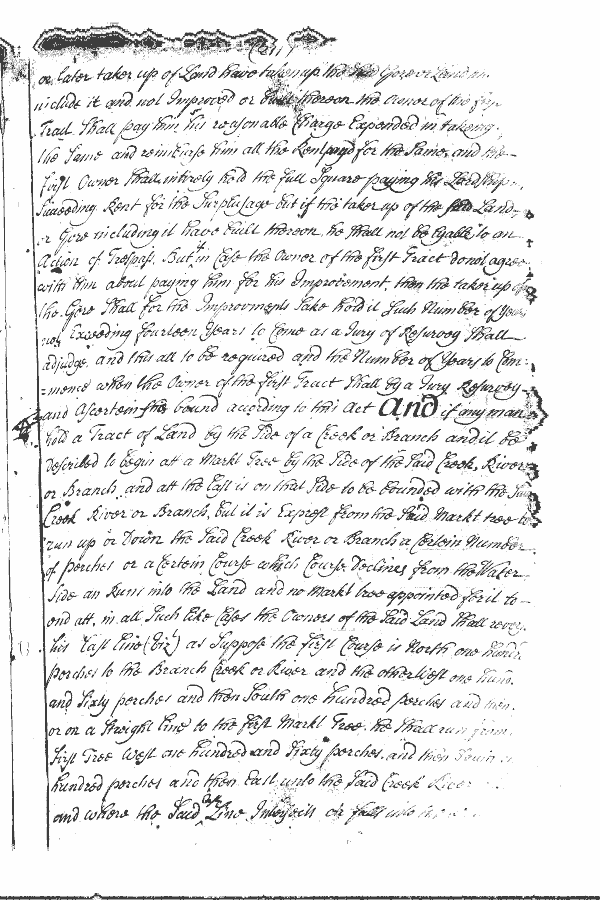 or later taker up of Land have taken up the Said Gore or Land
include it and not Improved or built thereon the owner of the
Tract Shall pay him his reasonable Charge Expended in takeing
the Same and reimburse him all the Rent paid for the Same and the
first Owner Shall intirely hold the full Square paying his Lordship
Suceeding Rent for the Surplusage but if the taker up of the Said Land
or Gore including it have built thereon, he Shall not be lyable to an
Action of Trespass, But in Case the Owner of the first Tract do not agree
with him about paying him for his Improvement, then the taker up of
the Gore Shall for the Improvments Sake hold it Such Number of Years
not Exceeding fourteen Years to Come as a Jury of Resurvey Shall
adjudge, and this all to be required and the Number of Years to Com=
=mence when the Owner of the first Tract Shall by a Jury Resurvey
and Ascertain his bound according to this Act And if any man
hold a Tract of Land by the Side of a Creek or Branch and it be
described to begin att a Markt Tree by the Side of the Said Creek, River
or Branch, and att the Last is on that Side to be bounded with the Said
Creek River or Branch, but it is Exprest from the Said Markt tree to
run up or Down the Said Creek River or Branch a Certein Number
of perches or a Certein Course which Course Declines from the Water
Side an Runs into the Land and no Markt tree appointed for it to
end att, in all Such like Cases the Owners of the Said Land Shall
his Last Line (Viz.t) as Suppose the first Course is North one
perches to the Branch Creek or River and the other West one
and Sixty perches and then South one hundred perches and then
or on a Straight Line to the first Markt Tree, he Shall run from
first Tree West one hundred and Sixty perches and then
hundred perches and then East unto the Said Creek River
and where the Said Line Intersects or falls into